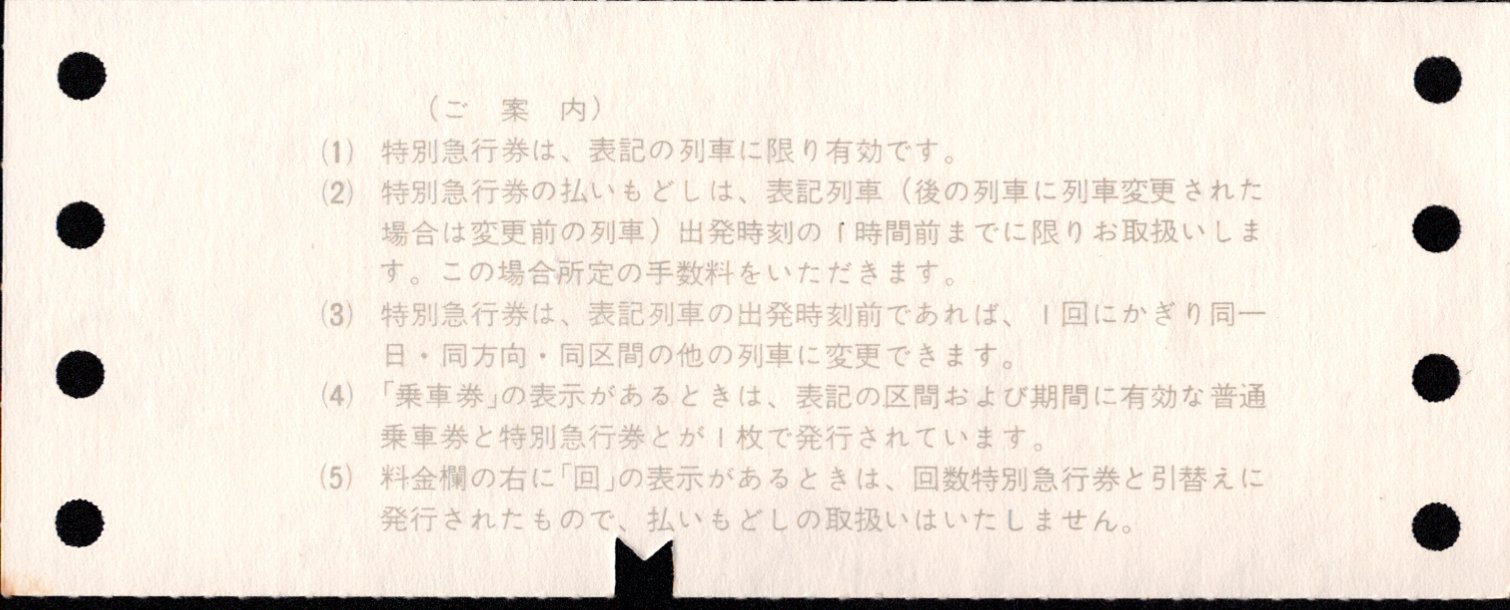 （ご　案　内）
(1) 特別急行券は、表記の列車に限り有効です。
(2) 特別急行券の払いもどしは、表記列車（後の列車に列車変更された
場合は変更前の列車）出発時刻の1時間前までに限りお取扱いしま
す。この場合所定の手数料をいただきます。
(3) 特別急行券は、表記列車の出発時刻前であれば、1回にかぎり同一
日・同方向・同区間の他の列車に変更できます。
(4) 「乗車券」の表示があるときは、表記の区間および期間に有効な普通
乗車券と特別急行券とが1枚で発行されています。
(5) 料金欄の右に「回」の表示があるときは、回数特別急行券と引替えに
発行されたもので、払いもどしの取扱いはいたしません。